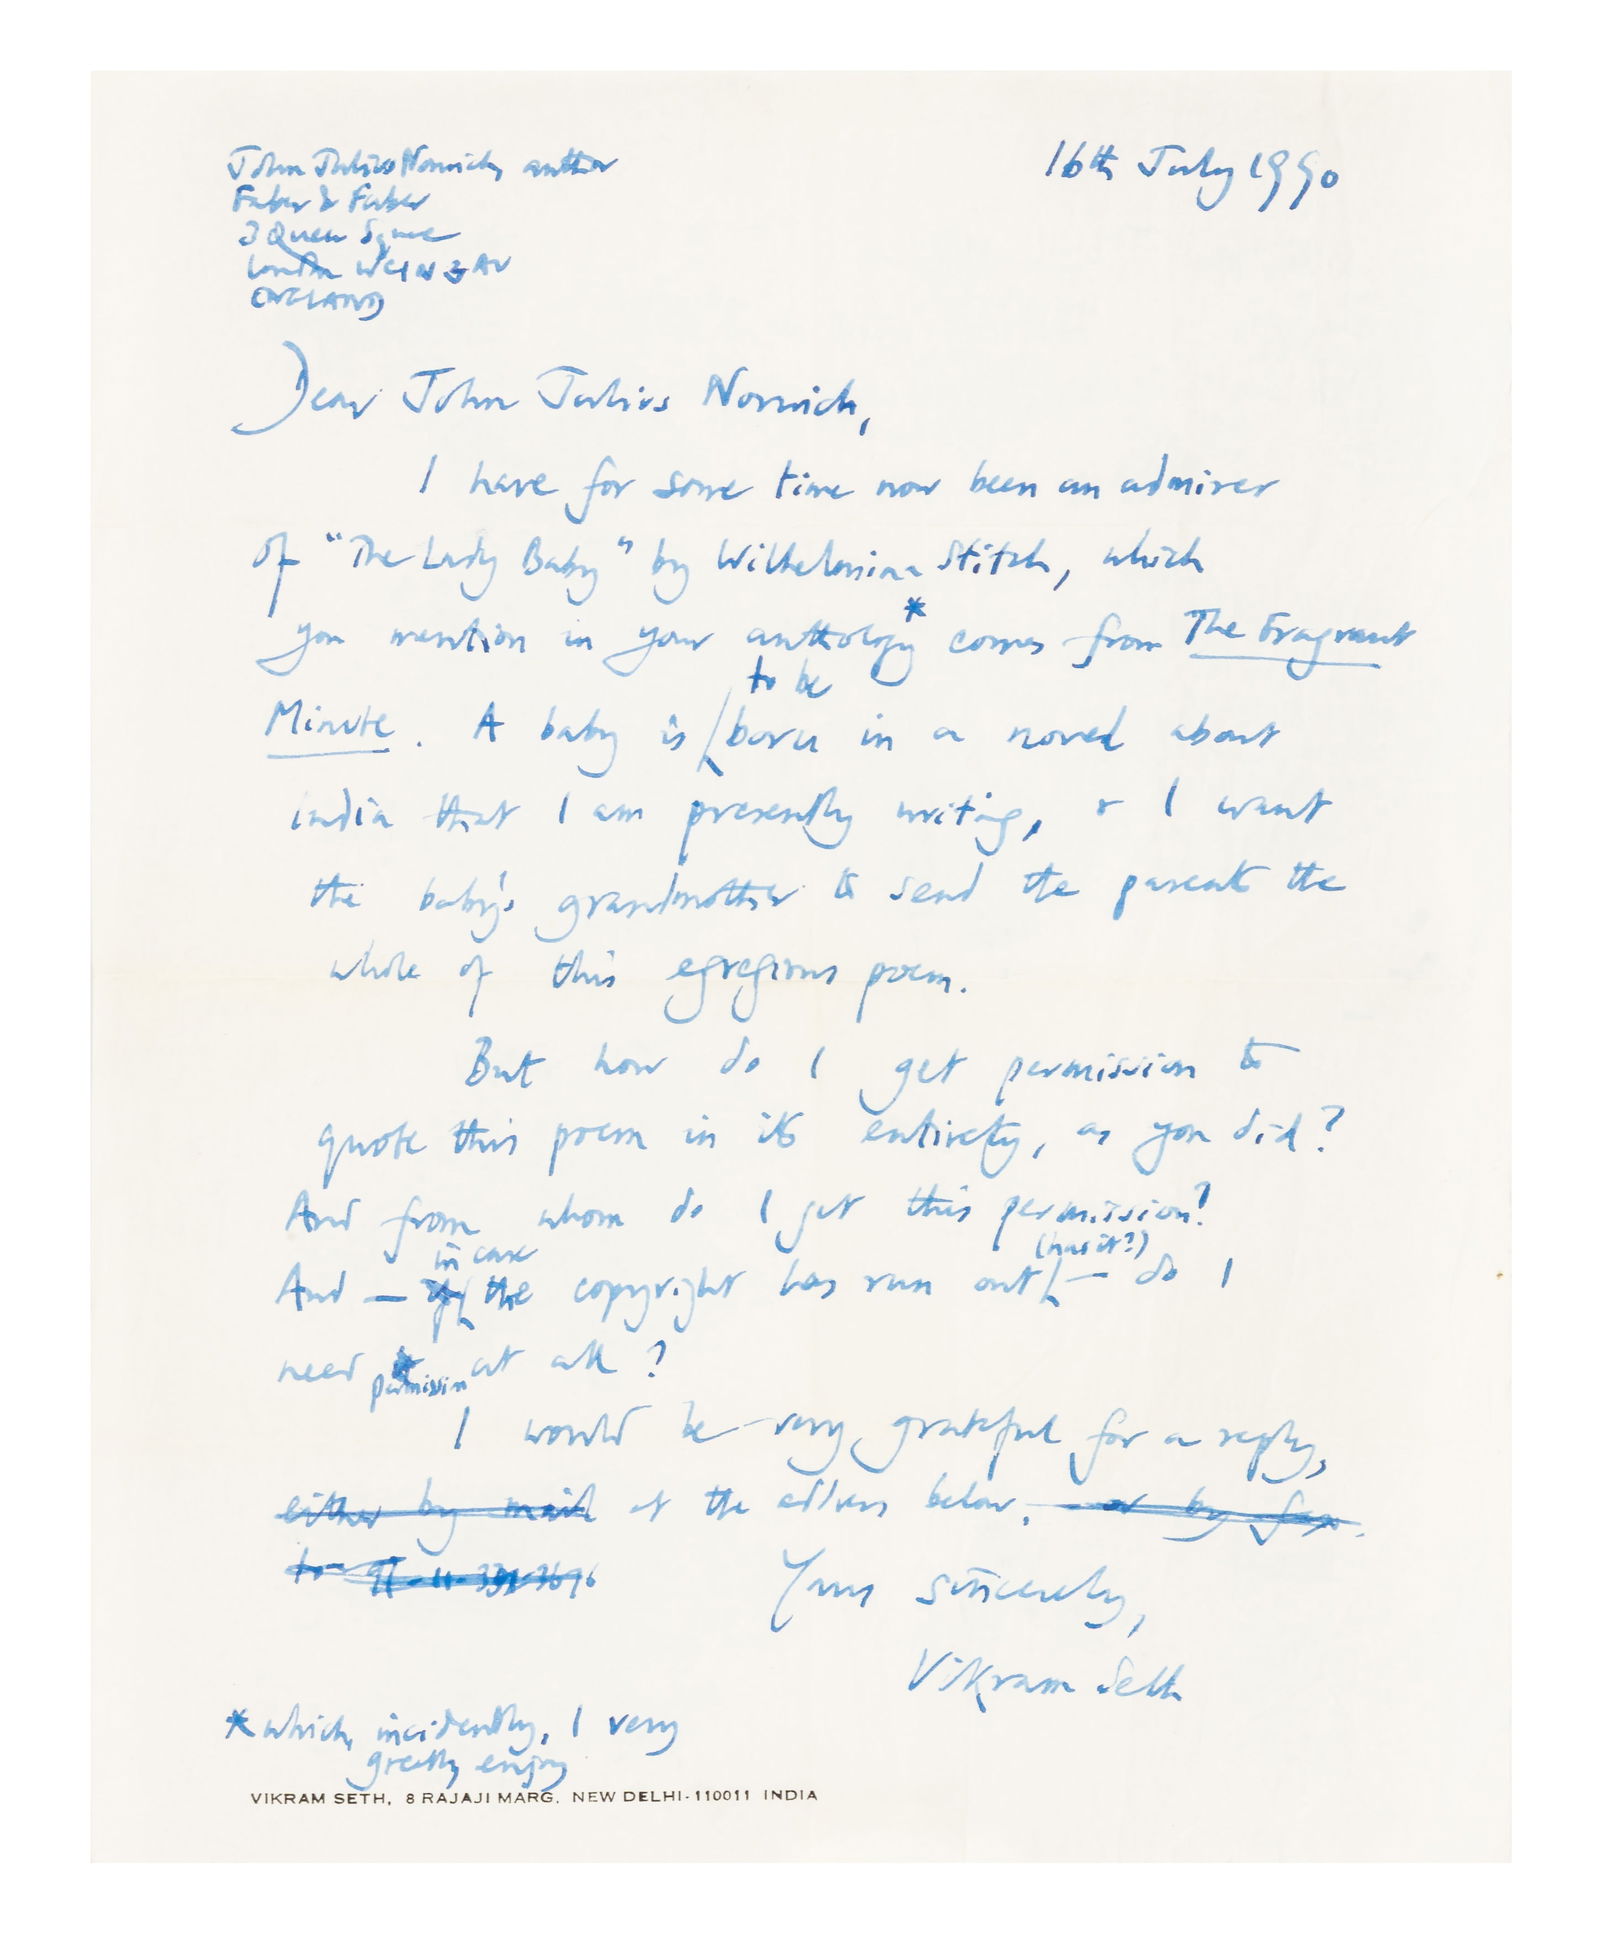 John Julius Norwich, author
Faber & Faber
3 Queen Square
London WC1N 3AU
ENGLAND
16th July 1990
Dear John Julius Norwich,
I have for some time now been an admirer
of "The Lady Baby" by Wilhelmina Stitch, which
you mention in your anthology* comes from The Fragrant
Minute. A baby is to be born in a novel about
India that I am presently writing, & I want
the baby's grandmother to send the parents the
whole of this egregious poem.
But how do I get permission to
quote this poem in its entirety, as you did?
And from whom do I get this permission?
And — if in case the copyright has run out (has it?) — do I
need permission at all?
I would be very grateful for a reply,
either by mail at the address below. or by fax.
to 91-11-331-3696
Yours sincerely,
Vikram Seth
*which, incidently, I very
greatly enjoy
VIKRAM SETH, 8 RAJAJI MARG, NEW DELHI-110011 INDIA